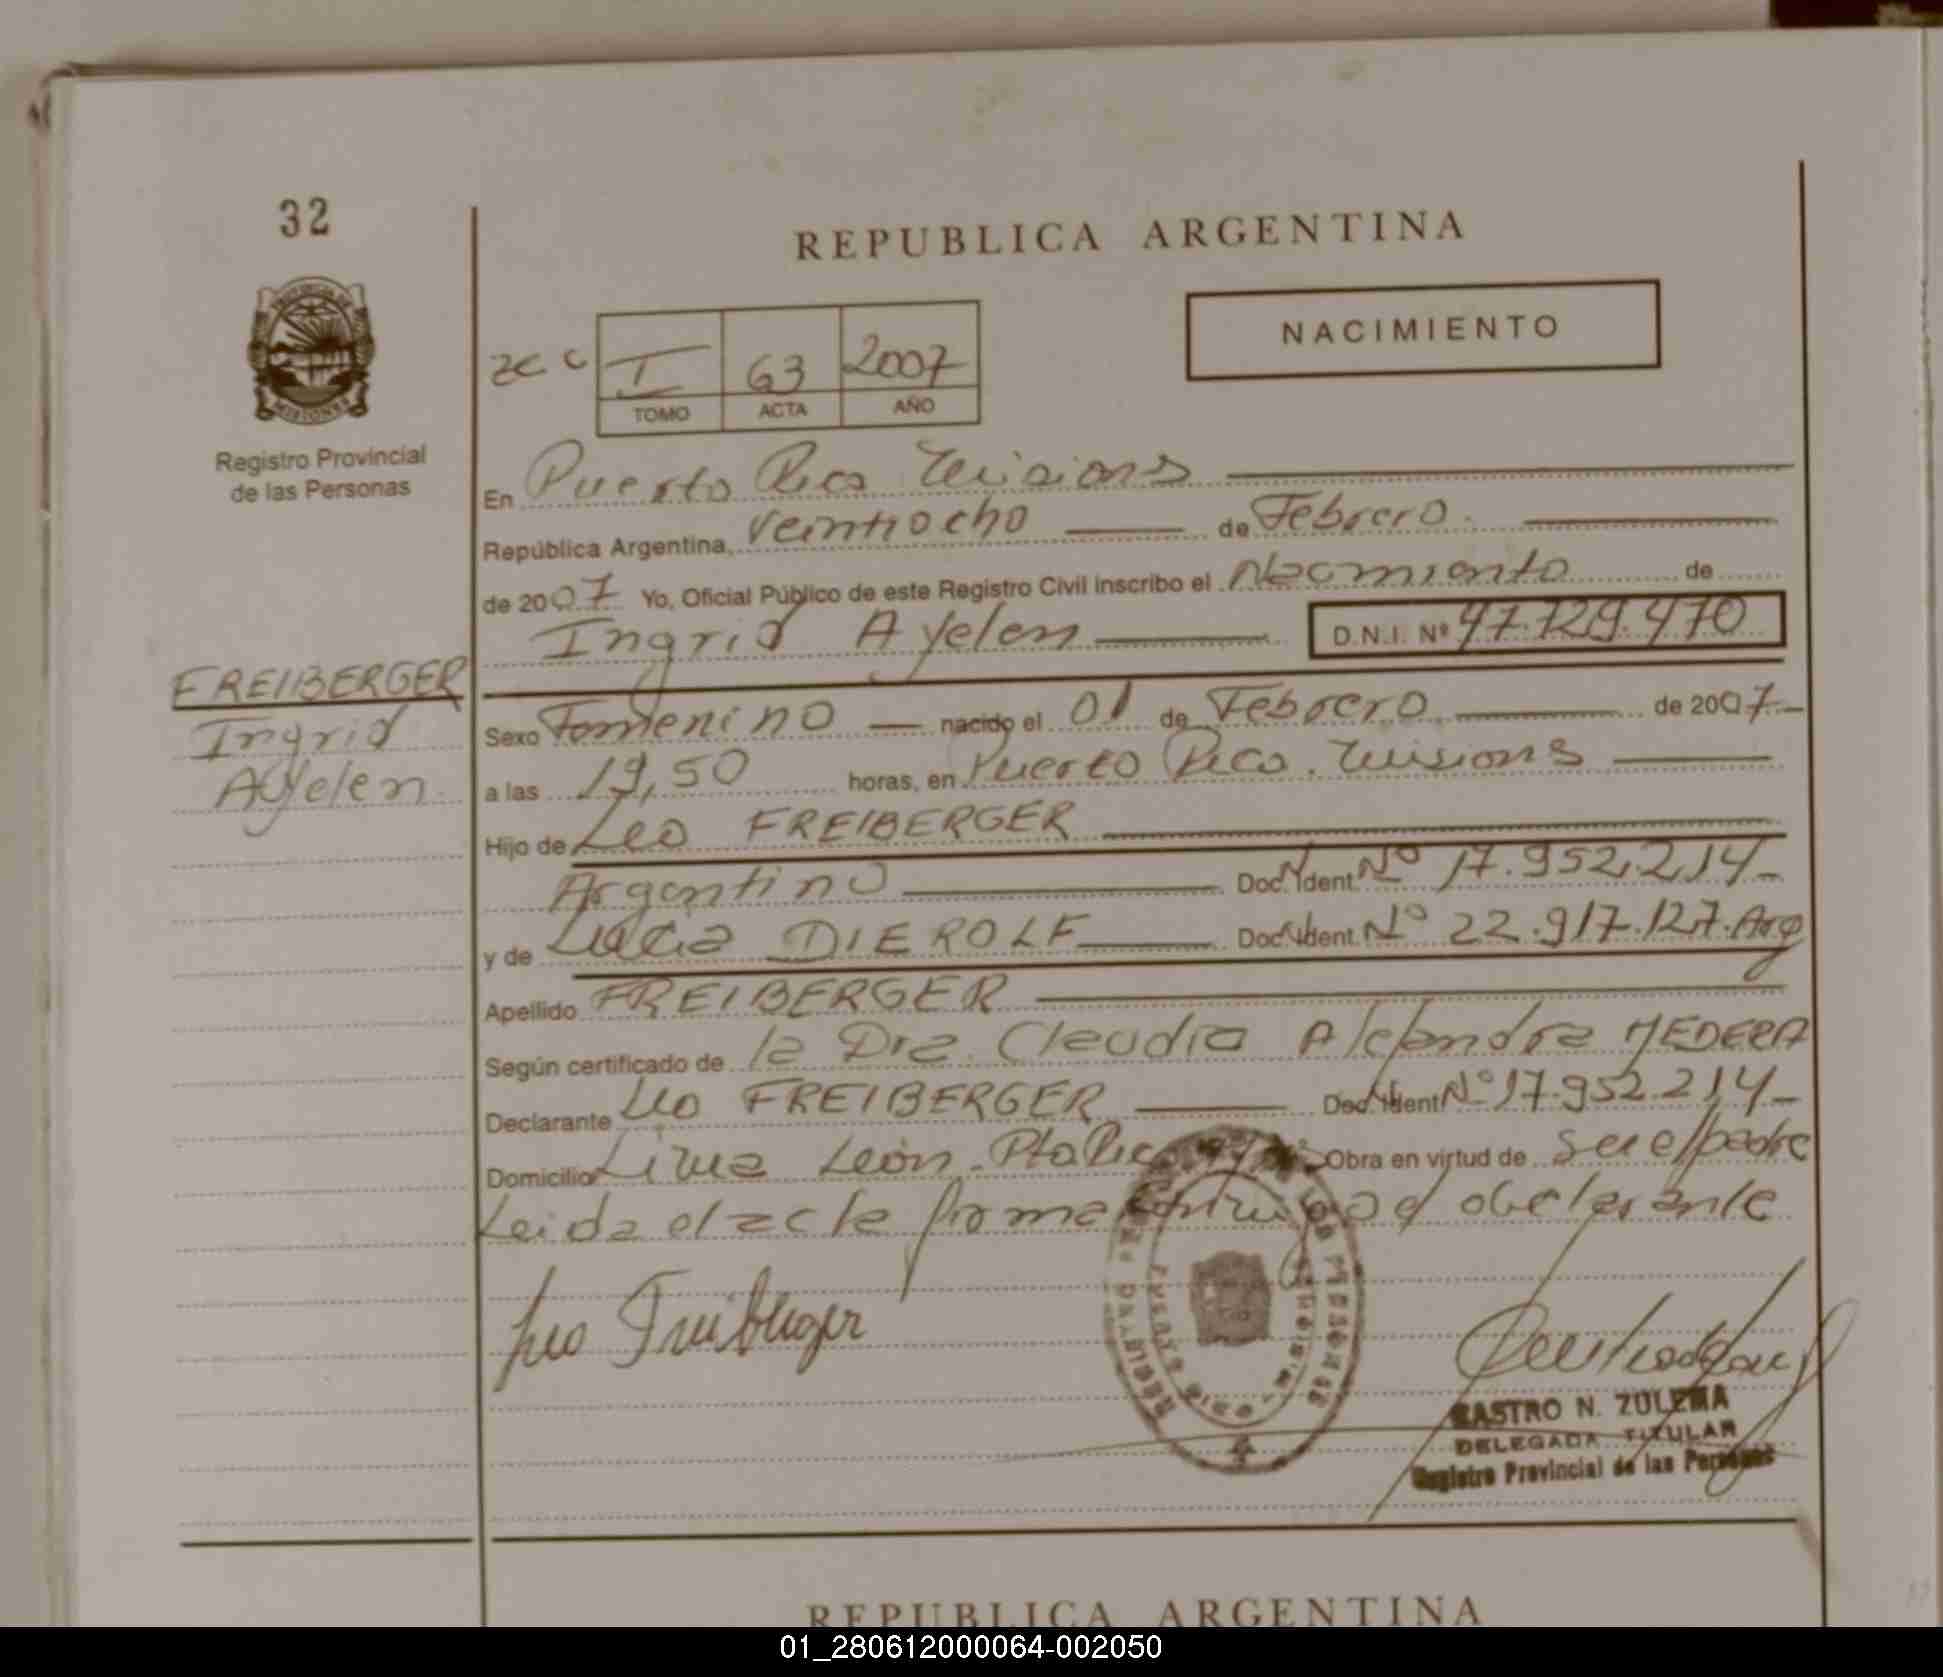 32
REPUBLICA ARGENTINA
NACIMIENTO
PROVINCIA DE
MISIONES
Registro Provincial
de las Personas
I 63 2007
TOMO ACTA AÑO
En Puerto Rico Misiones
República Argentina, veintiocho de Febrero
de 2007 Yo, Oficial Público de este Registro Civil inscribo el Nacimiento de
Ingrid Ayelen D.N.I. Nº 47.729.470
FREIBERGER
Ingrid
Ayelen
Sexo Femenino nacido el 01 de Febrero de 2007
a las 19,50 horas, en Puerto Rico. Misiones
Hijo de Leo FREIBERGER
Argentino Doc. Ident. Nº 17.952.214
y de DIEROLF Doc. Ident. Nº 22.917.127. Arg
Apellido FREIBERGER
Según certificado de la Dra. Claudia Alejandra MEDERA
Declarante Leo FREIBERGER Doc. Ident. Nº 17.952.214
Domicilio León. Pto Rico Obra en virtud de ser el padre
Leida el acta firma el declarante
Leo Freiberger
CASTRO N. ZULEMA
DELEGADA TITULAR
Registro Provincial de las Personas
REPUBLICA ARGENTINA
01_280612000064-002050